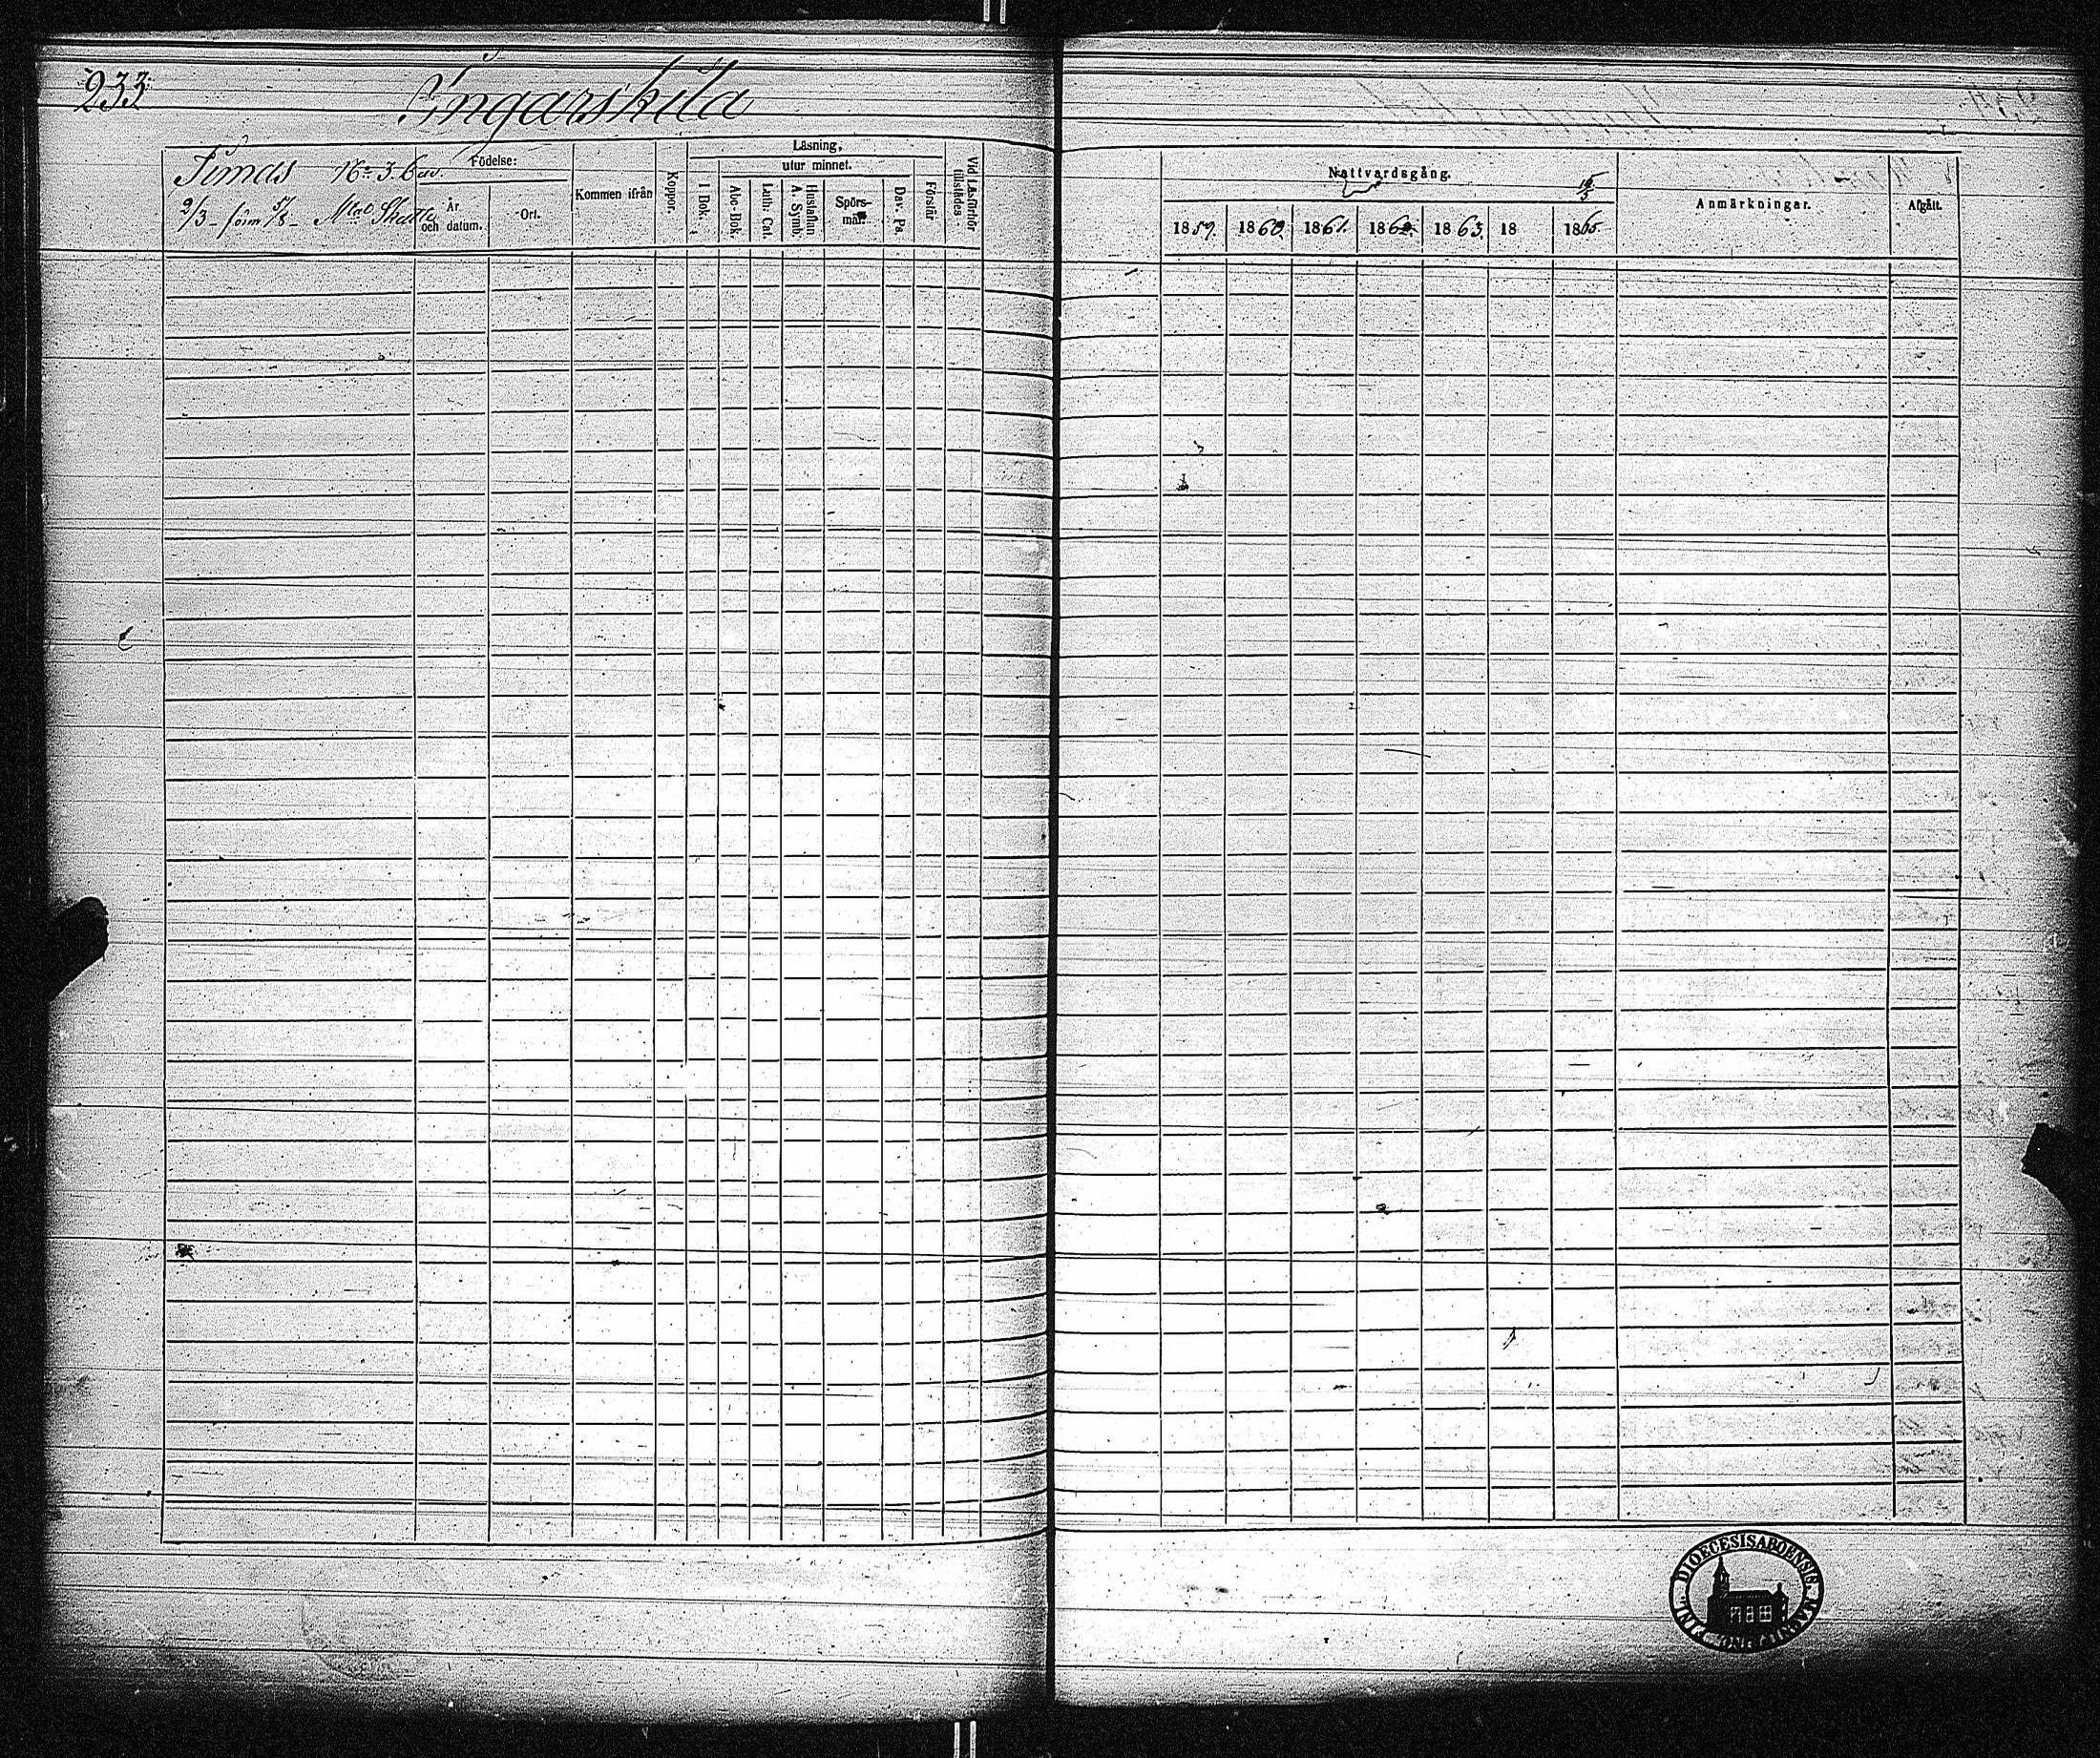 233
Ingarskila
Simas No 3.
2/3 förm 51/8
Födelse:
År och datum.
Ort.
Kommen ifrån
Koppor.
Läsning,
utur minnet.
I Bok.
Abc-Bok.
Luth. Cat.
Hustaflan A. Symb.
Spörs-mål
Dav. Ps.
Förstår
Vid Läsförhör tillstädes.
Nattvardsgång.
19/3
1859. 1860. 1861. 1862. 1863. 18 1865.
Anmärkningar.
Afgått.